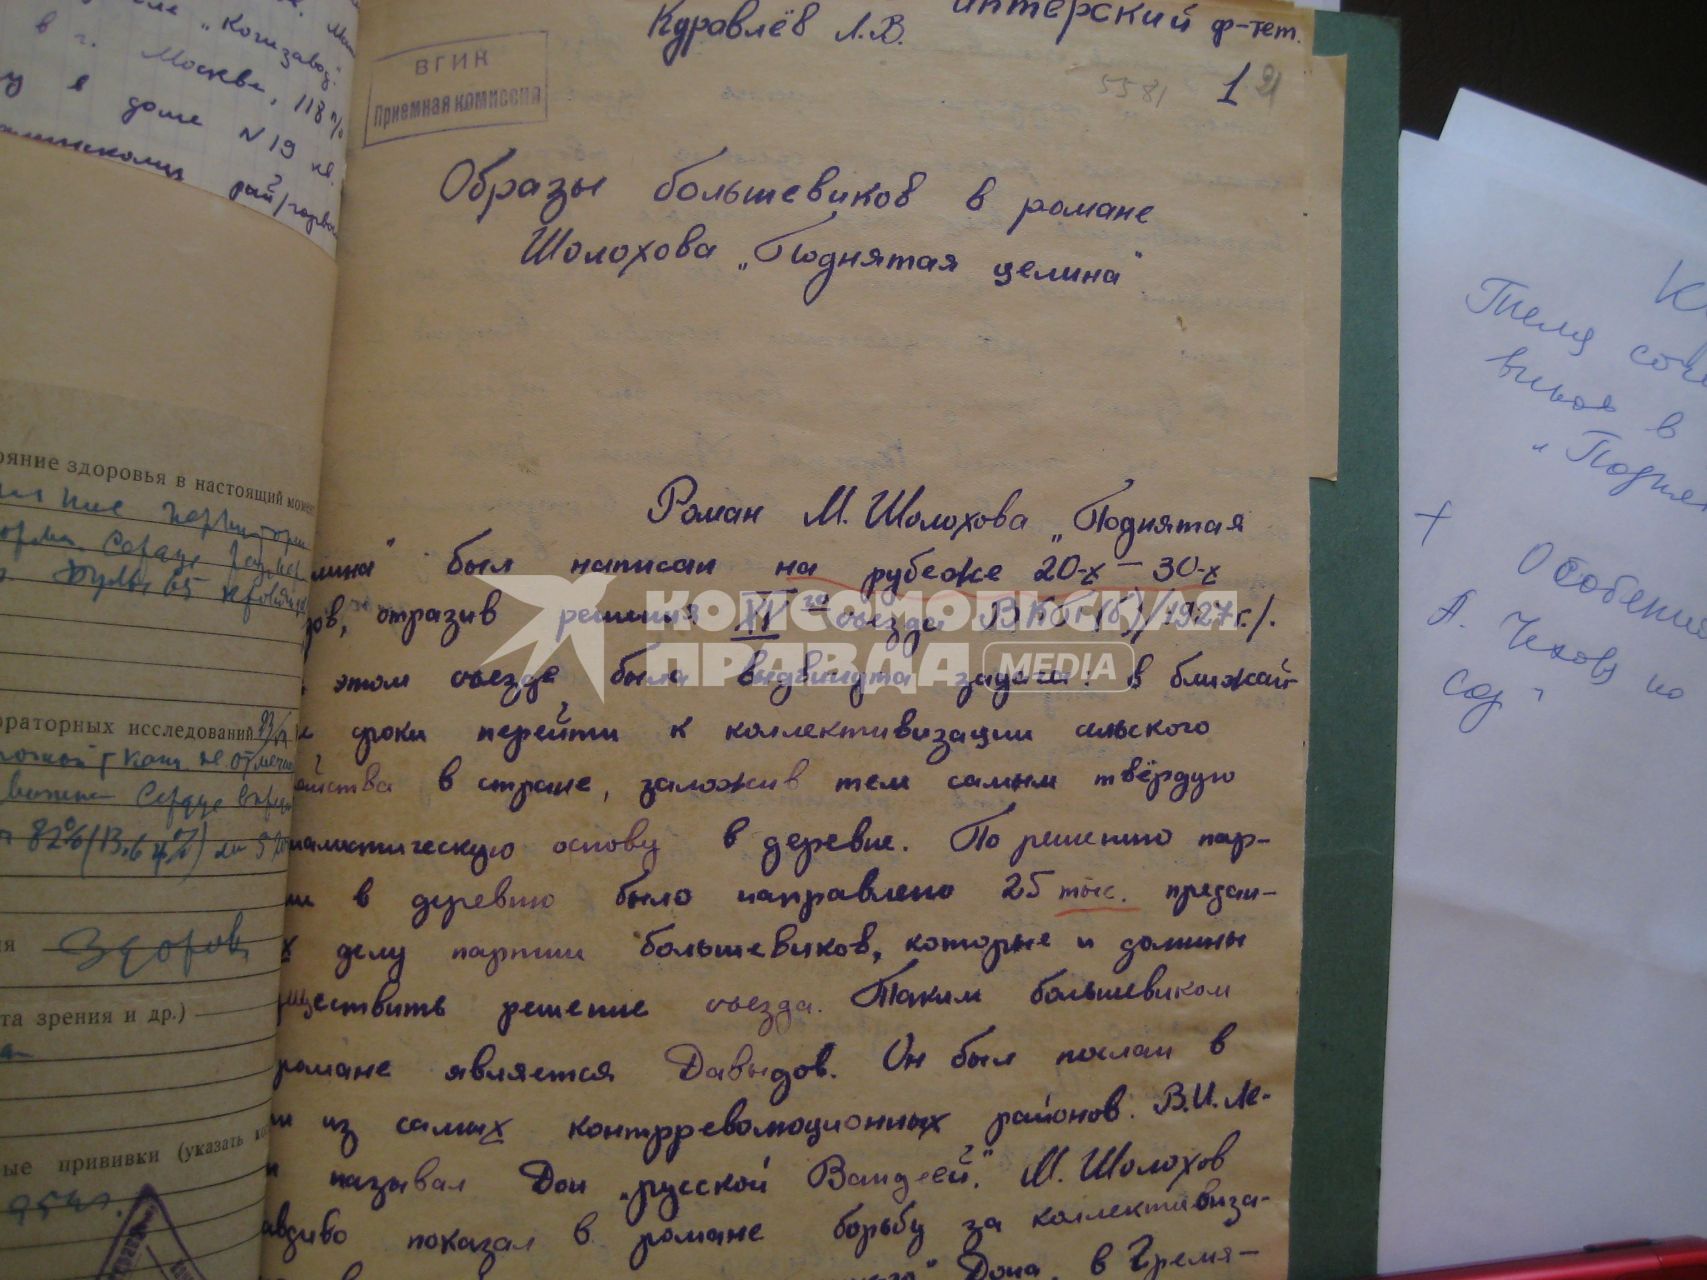 ле „Коизавод"
в г. Москве, 118 п/о
в доме N 19 кв.
рай/горвое
Куравлёв Л.В.
актерский ф-тет.
ВГИК
Приемная комиссия
5581
1
21
Образы большевиков в романе
Шолохова „Поднятая целина"
Роман М. Шолохова „Поднятая
лина" был написан на рубеже 20-х – 30-х
дов, отразив решения XV го съезда ВКП(б)/1927г/.
этом съезде была выдвинута задача: в ближай-
е сроки перейти к коллективизации сельского
яйства в стране, заложив тем самым твёрдую
иалистическую основу в деревне. По решению пар-
ии в деревню было направлено 25 тыс. предан-
х делу партии большевиков, которые и должны
уществить решение съезда. Таким большевиком
романе является Давыдов. Он был послан в
ин из самых контрреволюционных районов. В.И. Ле-
н называл Дон „русской Вандеей". М. Шолохов
авдиво показал в романе борьбу за коллективиза-
Дона, в Гремя-
ояние здоровья в настоящий момент
ораторных исследований
82% (13,6 г%)
ия здоров
та зрения и др.)
ые прививки (указать ко
954 г.
К
Тема соче
виков в
„Подня
+ Особенн
А. Чехов
сад"
КОМСОМОЛЬСКАЯ
ПРАВДА MEDIA